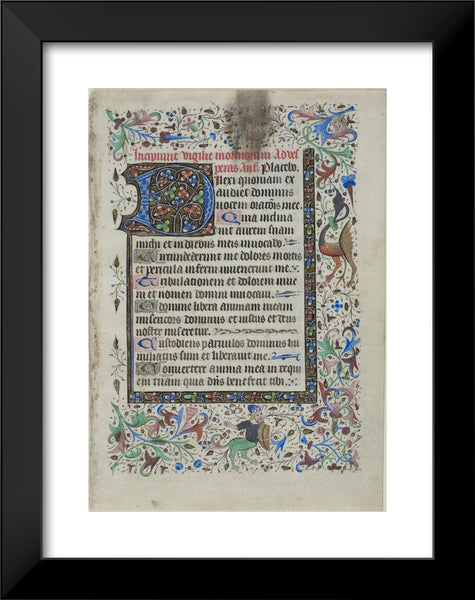 Incipiunt vigilie mortuorum Ad ves
peras. Ant. Placebo.
Dilexi quoniam ex
audiet dominus
vocem oratōis mee.
Quia inclina
vit aurem suam
michi et in diebus meis invocabo.
Circundederunt me dolores mortis
et pericula inferni invenerunt me.
Tribulationem et dolorem inve
ni et nomen domini invocavi.
O domine libera animam meam
misericors dominus et iustus et deus
noster miseretur.
Custodiens parvulos dominus hu
miliatus sum et liberavit me.
Convertere anima mea in requi
em tuam quia dn̄s benefecit tibi.